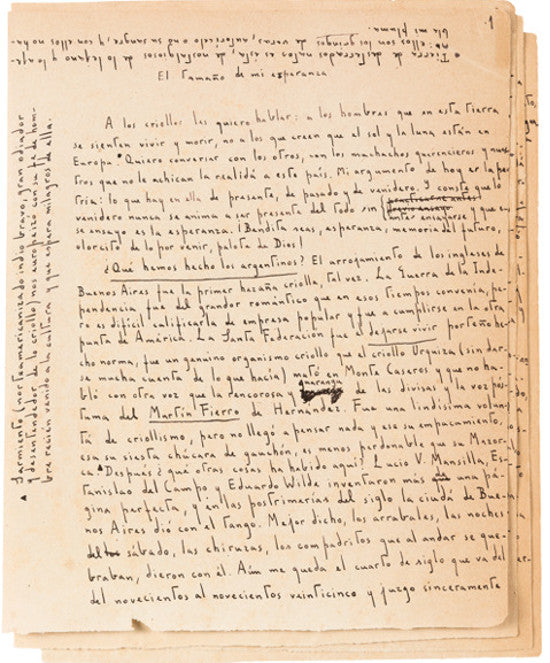 1
El tamaño de mi esperanza
A los criollos les quiero hablar: a los hombres que en esta tierra
se sienten vivir y morir, no a los que creen que el sol y la luna están en
Europa. Quiero conversar con los otros, con los muchachos querencieros y nues-
tros que no le achican la realidá a este país. Mi argumento de hoy es la pa-
tria: lo que hay en ella de presente, de pasado y de venidero. Y conste que lo
venidero nunca se anima a ser presente del todo sin antes ensayarse y que ese
ensayo es la esperanza. ¡Bendita seas, esperanza, memoria del futuro,
olorcito de lo por venir, palote de Dios!
¿Qué hemos hecho los argentinos? El arrojamiento de los ingleses de
Buenos Aires fue la primer hazaña criolla, tal vez. La Guerra de la Inde-
pendencia fue del grandor romántico que en esos tiempos convenía, pe-
ro es difícil calificarla de empresa popular y fue a cumplirse en la otra
punta de América. La Santa Federación fue el dejarse vivir porteño he-
cho norma, fue un genuino organismo criollo que el criollo Urquiza (sin dar-
se mucha cuenta de lo que hacía) mató en Monte Caseros y que no ha-
bló con otra voz que la rencorosa y guaranga de las divisas y la voz pós-
tuma del Martín Fierro de Hernández. Fue una lindísima volun-
tá de criollismo, pero no llegó a pensar nada y ese su empacamiento,
esa su siesta chúcara de gauchón, es menos perdonable que su Mazor-
ca. Después ¿qué otras cosas ha habido aquí? Lucio V. Mansilla, Es-
tanislao del Campo y Eduardo Wilde inventaron más de una pá-
gina perfecta, y en las postrimerías del siglo la ciudá de Bue-
nos Aires dió con el tango. Mejor dicho, los arrabales, las noches
del sábado, las chiruzas, los compadritos que al andar se que-
braban, dieron con él. Aún me queda el cuarto de siglo que va del
novecientos al novecientos veinticinco y juzgo sinceramente
• Tierra de desterrados natos es ésta, de nostalgiosos de lo lejano y lo aje-
no: ellos son los gringos de veras, autorícelo o no su sangre, y con ellos no ha-
bla mi pluma.
▲ Sarmiento (norteamericanizado indio bravo, gran odiador
y desentendedor de lo criollo) nos europeizó con su fé de hom-
bre recién venido a la cultura y que espera milagros de ella.